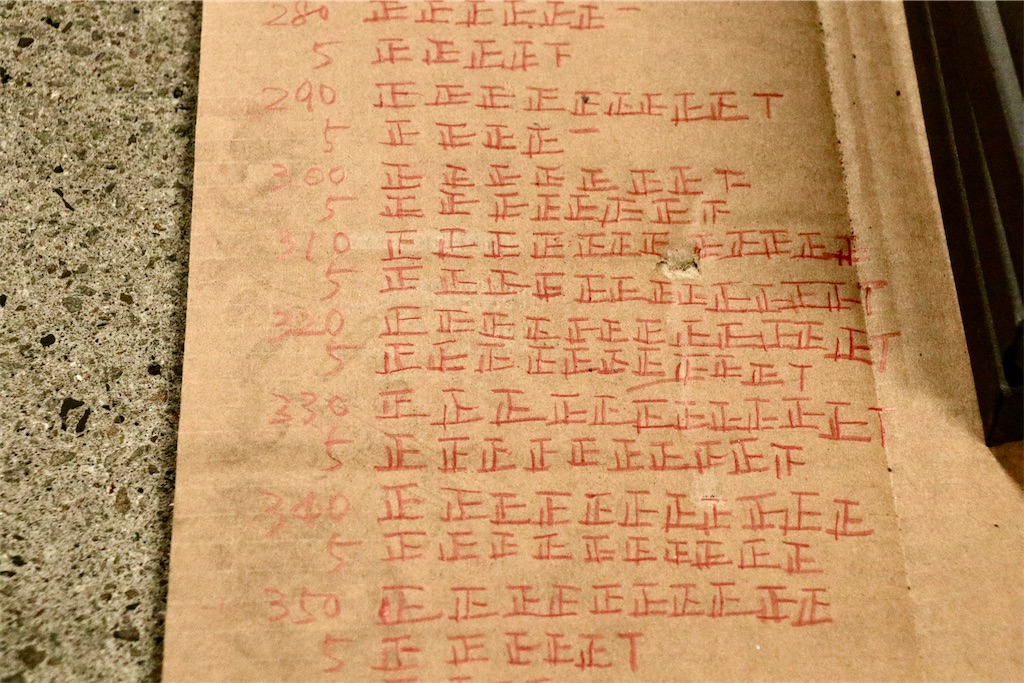 280 正正正正正正一
5 正正正正下
290 正正正正正正正正正丅
5 正正正正一
300 正正正正正正正下
5 正正正正正正正下
310 正正正正正正正正正正正正
5 正正正正正正正正正正正正丅
320 正正正正正正正正正正正正丅
5 正正正正正正正正正正丅
330 正正正正正正正正正正正丅
5 正正正正正正正正正下
340 正正正正正正正正正正正
5 正正正正正正正正正正
350 正正正正正正正正正正
5 正正正正正丅